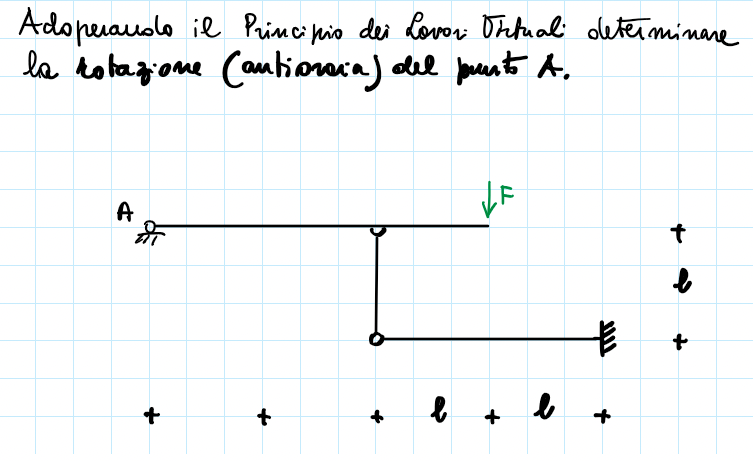 Adoperando il Principio dei Lavori Virtuali determinare
la rotazione (antioraria) del punto A.
A
F
l
l l